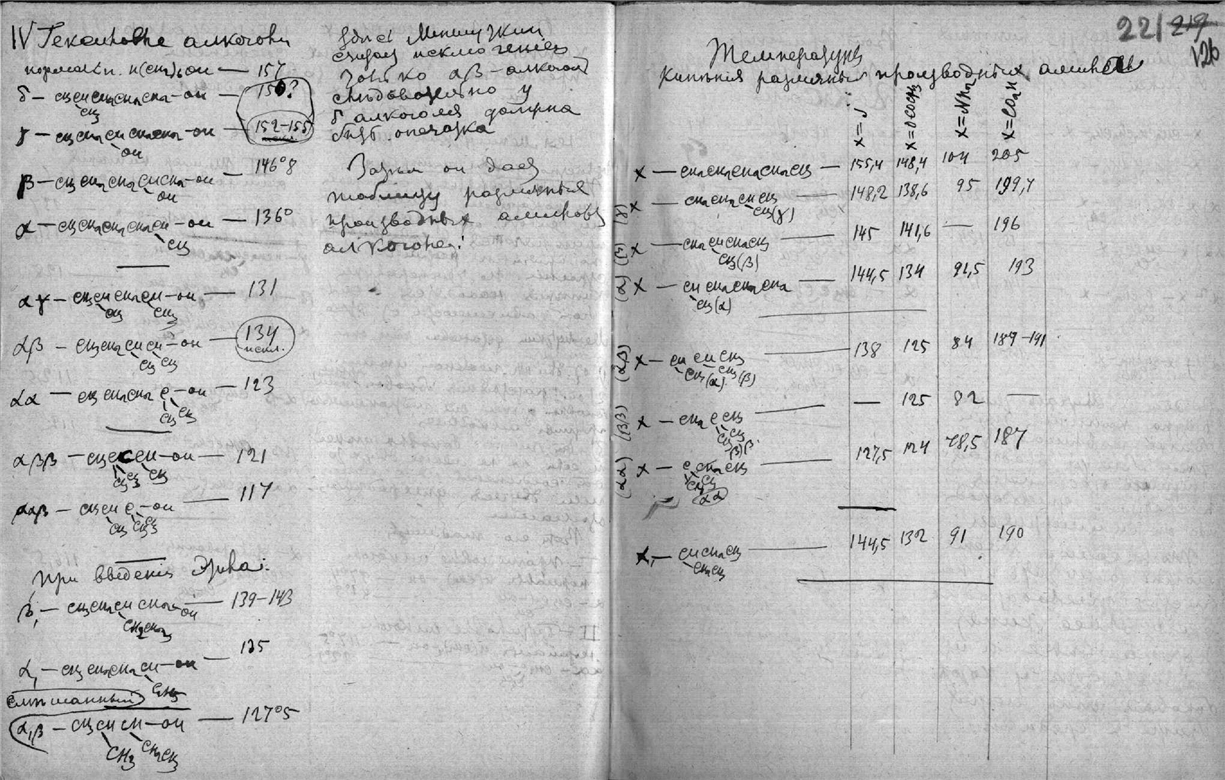 IV Гексиловые алкоголи
нормальн. н(CH2)6OH — 157
δ — CH3CHCH2CH2CH2—OH — 150?
CH3
γ — CH3CH2CHCH2CH2—OH — 152–155
CH3
β — CH3CH2CH2CHCH2—OH — 146°8
CH3
α — CH3CH2CH2CH2CH—OH — 136°
CH3
αγ — CH3CHCH2CH—OH — 131
CH3 CH3
αβ — CH3CH2CHCH—OH — 134
CH3 CH3 искл.
αα — CH3CH2CH2C—OH — 123
CH3 CH3
αββ — CH3CCH—OH — 121
CH3 CH3 CH3
ααβ — CH3CH C—OH — 117
CH3 CH3 CH3
При введении Этила:
β1 — CH3CH2CHCH2—OH — 139–143
CH2CH3
α1 — CH3CH2CH2CH—OH — 135
CH2CH3
смешанный
α1β — CH3CH CH—OH — 127°5
CH3 CH2CH3
Здесь Меншуткин
исключение
только αβ-алкоголь
следовательно у
δ алкоголя должна
быть опечатка
Затем он дает
таблицу различных
производных амиловых
алкоголей.
22/29
126
Температура
кипения различных производных амилов
X=J
X=OCOCH3
X=NH2
X=CO2H
X — CH2CH2CH2CH2CH3 — 155,4 148,4 104 205
(γ) X — CH2CH2CHCH3 — 148,2 138,6 95 199,7
CH3(γ)
(β) X — CH2CHCH2CH3 — 145 141,6 — 196
CH3(β)
(α) X — CHCH2CH2CH3 — 144,5 134 91,5 193
CH3(α)
(αβ) X — CH CHCH3 — 138 125 84 189–191
CH3(α) CH3(β)
(ββ) X — CH2CCH3 — — 125 82 —
CH3 CH3 ββ
(αα) X — C CH2CH3 — 127,5 124 78,5 187
CH3 CH3
αα
X1 — CHCH2CH3 — 144,5 132 91 190
CH2CH3